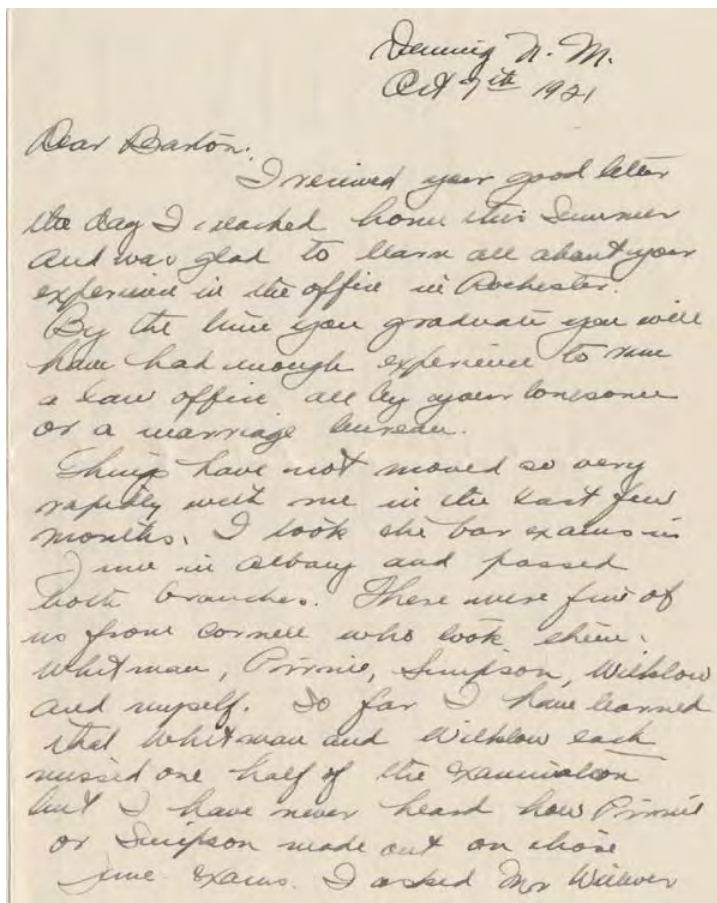 Deming N. M.
Oct 7th 1921
Dear Barton:
I received your good letter
the day I reached home this Summer
and was glad to learn all about your
experience in the office in Rochester.
By the time you graduate you will
have had enough experience to run
a law office all by your lonesome
or a marriage bureau.
Things have not moved so very
rapidly with me in the last few
months. I took the bar exams in
June in Albany and passed
both branches. There were five of
us from Cornell who took them:
Whitman, Pirnie, Simpson, Wilklow
and myself. So far I have learned
that Whitman and Wilklow each
missed one half of the examination
but I have never heard how Pirnie
or Simpson made out on those
June exams. I asked Mr